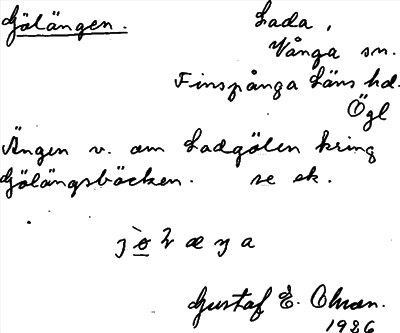 Gölängen. Lada,
Vånga sn.
Finspånga Läns hd.
Ögl
Ängen v. om Ladgölen kring
Gölängsbäcken. se ek.
Gustaf E. Ohman.
1926